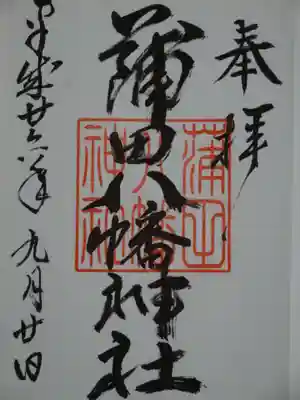 奉拝
蒲田八幡神社
平成廿六年九月廿日
蒲田
八幡
神社